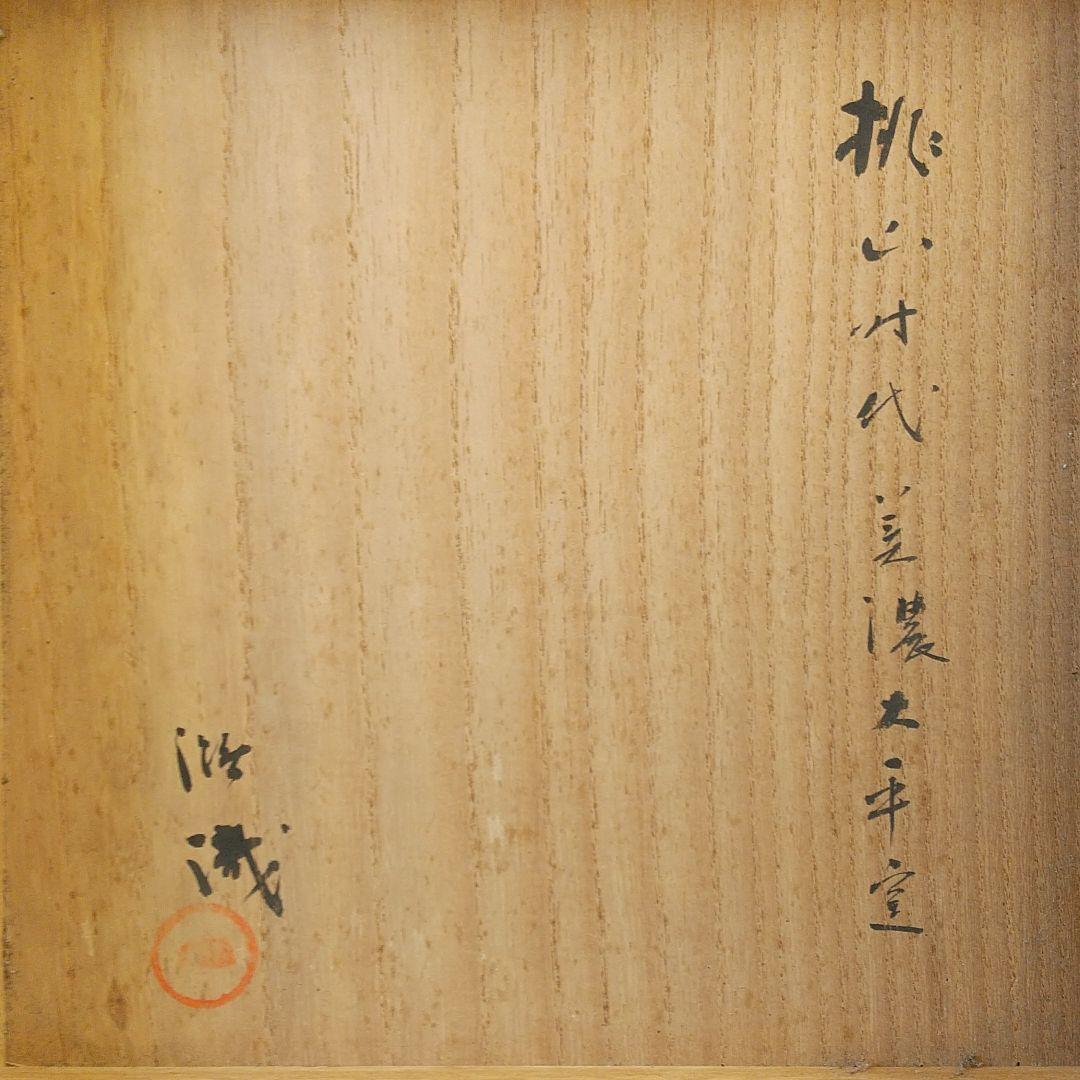 桃山时代美濃大平窯
浩識